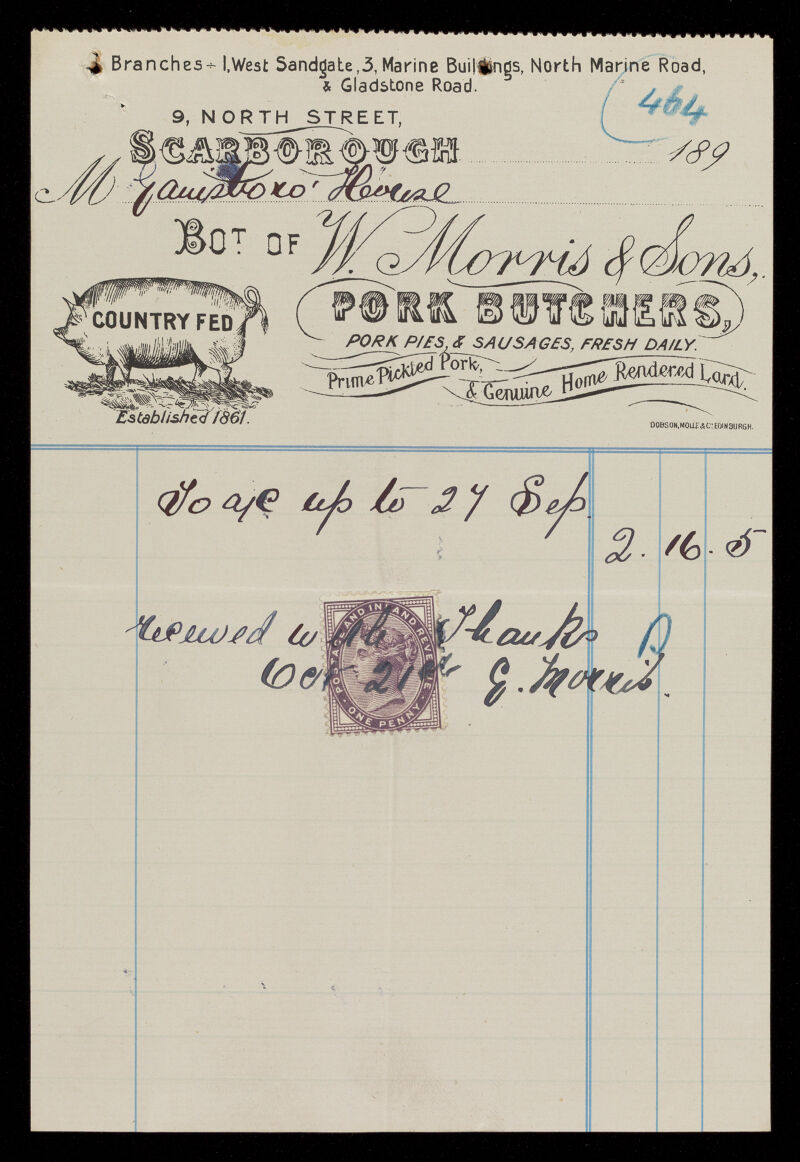 Branches÷ 1, West Sandgate, 3, Marine Buildings, North Marine Road,
& Gladstone Road.
464
9, NORTH STREET,
SCARBOROUGH 189
M Gainsboro' House
BOT OF W. Morris & Sons,
PORK BUTCHERS,
COUNTRY FED
PORK PIES, & SAUSAGES, FRESH DAILY.
Prime Pickled Pork,
& Genuine Home Rendered Lard.
Established 1861.
DOBSON, MOLLE & Co EDINBURGH.
To a/c up to 27 Sep.
2. 16. 5
received with Thanks
Oct 21st G. Morris.
POSTAGE AND INLAND REVENUE
ONE PENNY